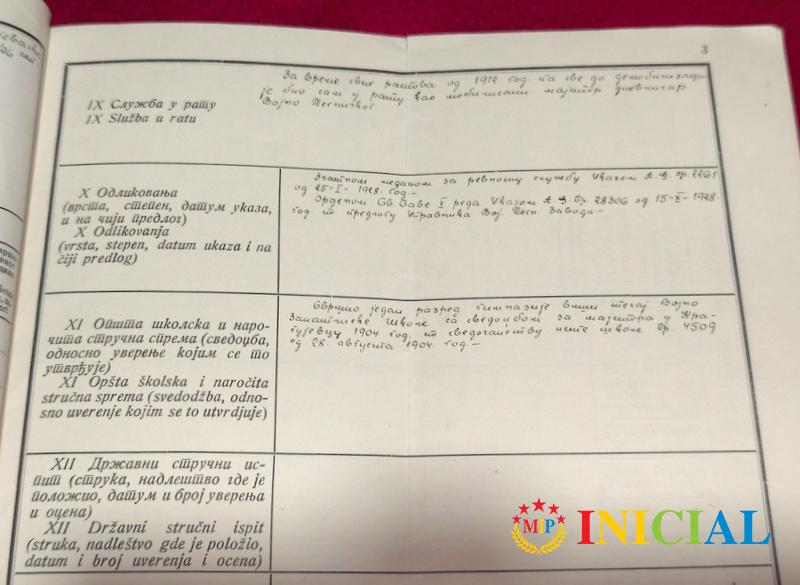 3
IX Служба у рату
IX Služba u ratu
За време свих ратова од 1912. год. па све до демобилизације
је био сам у рату као мобилисани мајстор дневничар
Војно
X Одликовања
(врста, степен, датум указа,
и на чији предлог)
X Odlikovanja
(vrsta, stepen, datum ukaza i na
čiji predlog)
Златном медаљом за ревносну службу Указом А. Д. бр. 2261
од 25-I- 1928. год.-
Орденом Св. Саве V реда Указом А. Д. бр. 28306 од 15-X-1928.
год. по предлогу Управника Вој. Техн. Завода-
XI Општа школска и наро-
чита стручна спрема (сведоџба,
односно уверење којим се то
утврђује)
XI Opšta školska i naročita
stručna sprema (svedodžba, odno-
sno uverenje kojim se to utvrdjuje)
Свршио један разред гимназије виши течај Војно
Занатлиске школе са сведоџбом за мајстора у Кра-
гујевцу 1904. год. по сведочанству исте школе бр. 4509
од 28. августа 1904. год.-
XII Државни стручни ис-
пит (струка, надлештво где је
положио, датум и број уверења
и оцена)
XII Državni stručni ispit
(struka, nadleštvo gde je položio,
datum i broj uverenja i ocena)
MIP INICIAL